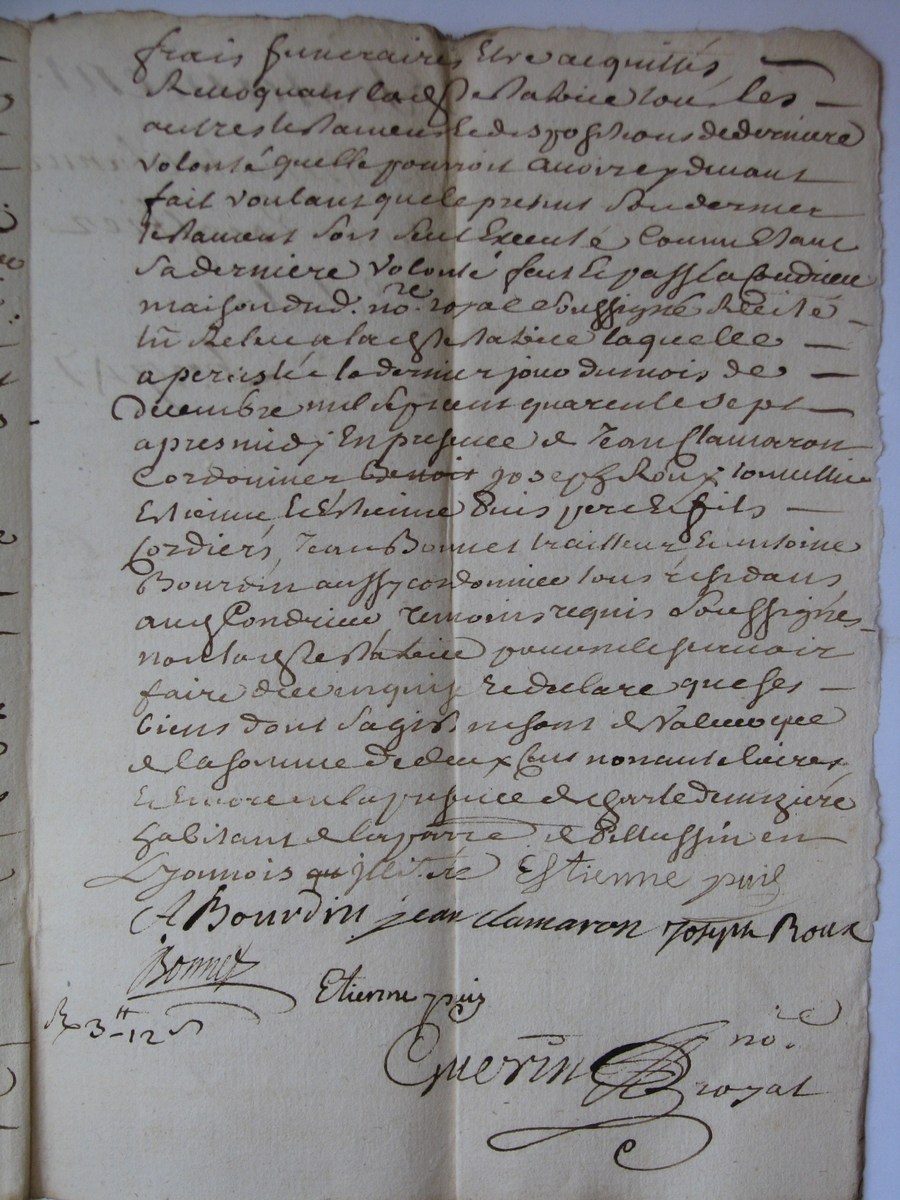 frais funeraires Etre acquittés
Revoquant lad. testatrice tous les
autres testamens & dispositions de derniere
volonté quelle pourroit avoir cy devant
fait voulant que le present son dernier
testament soit seul Executé Comme Etant
sa derniere volonté fait & passé a Condrieu
maison dud. nore. royal soussigné Recité
leu Releu a lad. testatrice laquelle
a persisté le dernier jour du mois de
decembre mil sept cent quarente sept
apres midy En presence de Jean Clamaron
Cordonnier Benoit Joseph Roux
Estienne & Estienne Puis pere & fils
Cordiers, Jean Bonnet trailleur & antoine
Bourdin aussy cordonnier tous residans
aud. Condrieu temoins requis soussignés
non lad. testatrice pour ne le sçavoir
faire de ce enquise & declare que ses
biens dont sagit ne sont de valeur que
de la somme de deux Cent nonante livres
& Encore en la presence de
habitant de la parre. de Pellussin en
Lyonnois Estienne puis
A Bourdin jean clamaron Joseph Roux
Bonnet
Etienne puis
R 3tt 12 s
Guerin nore.
royal